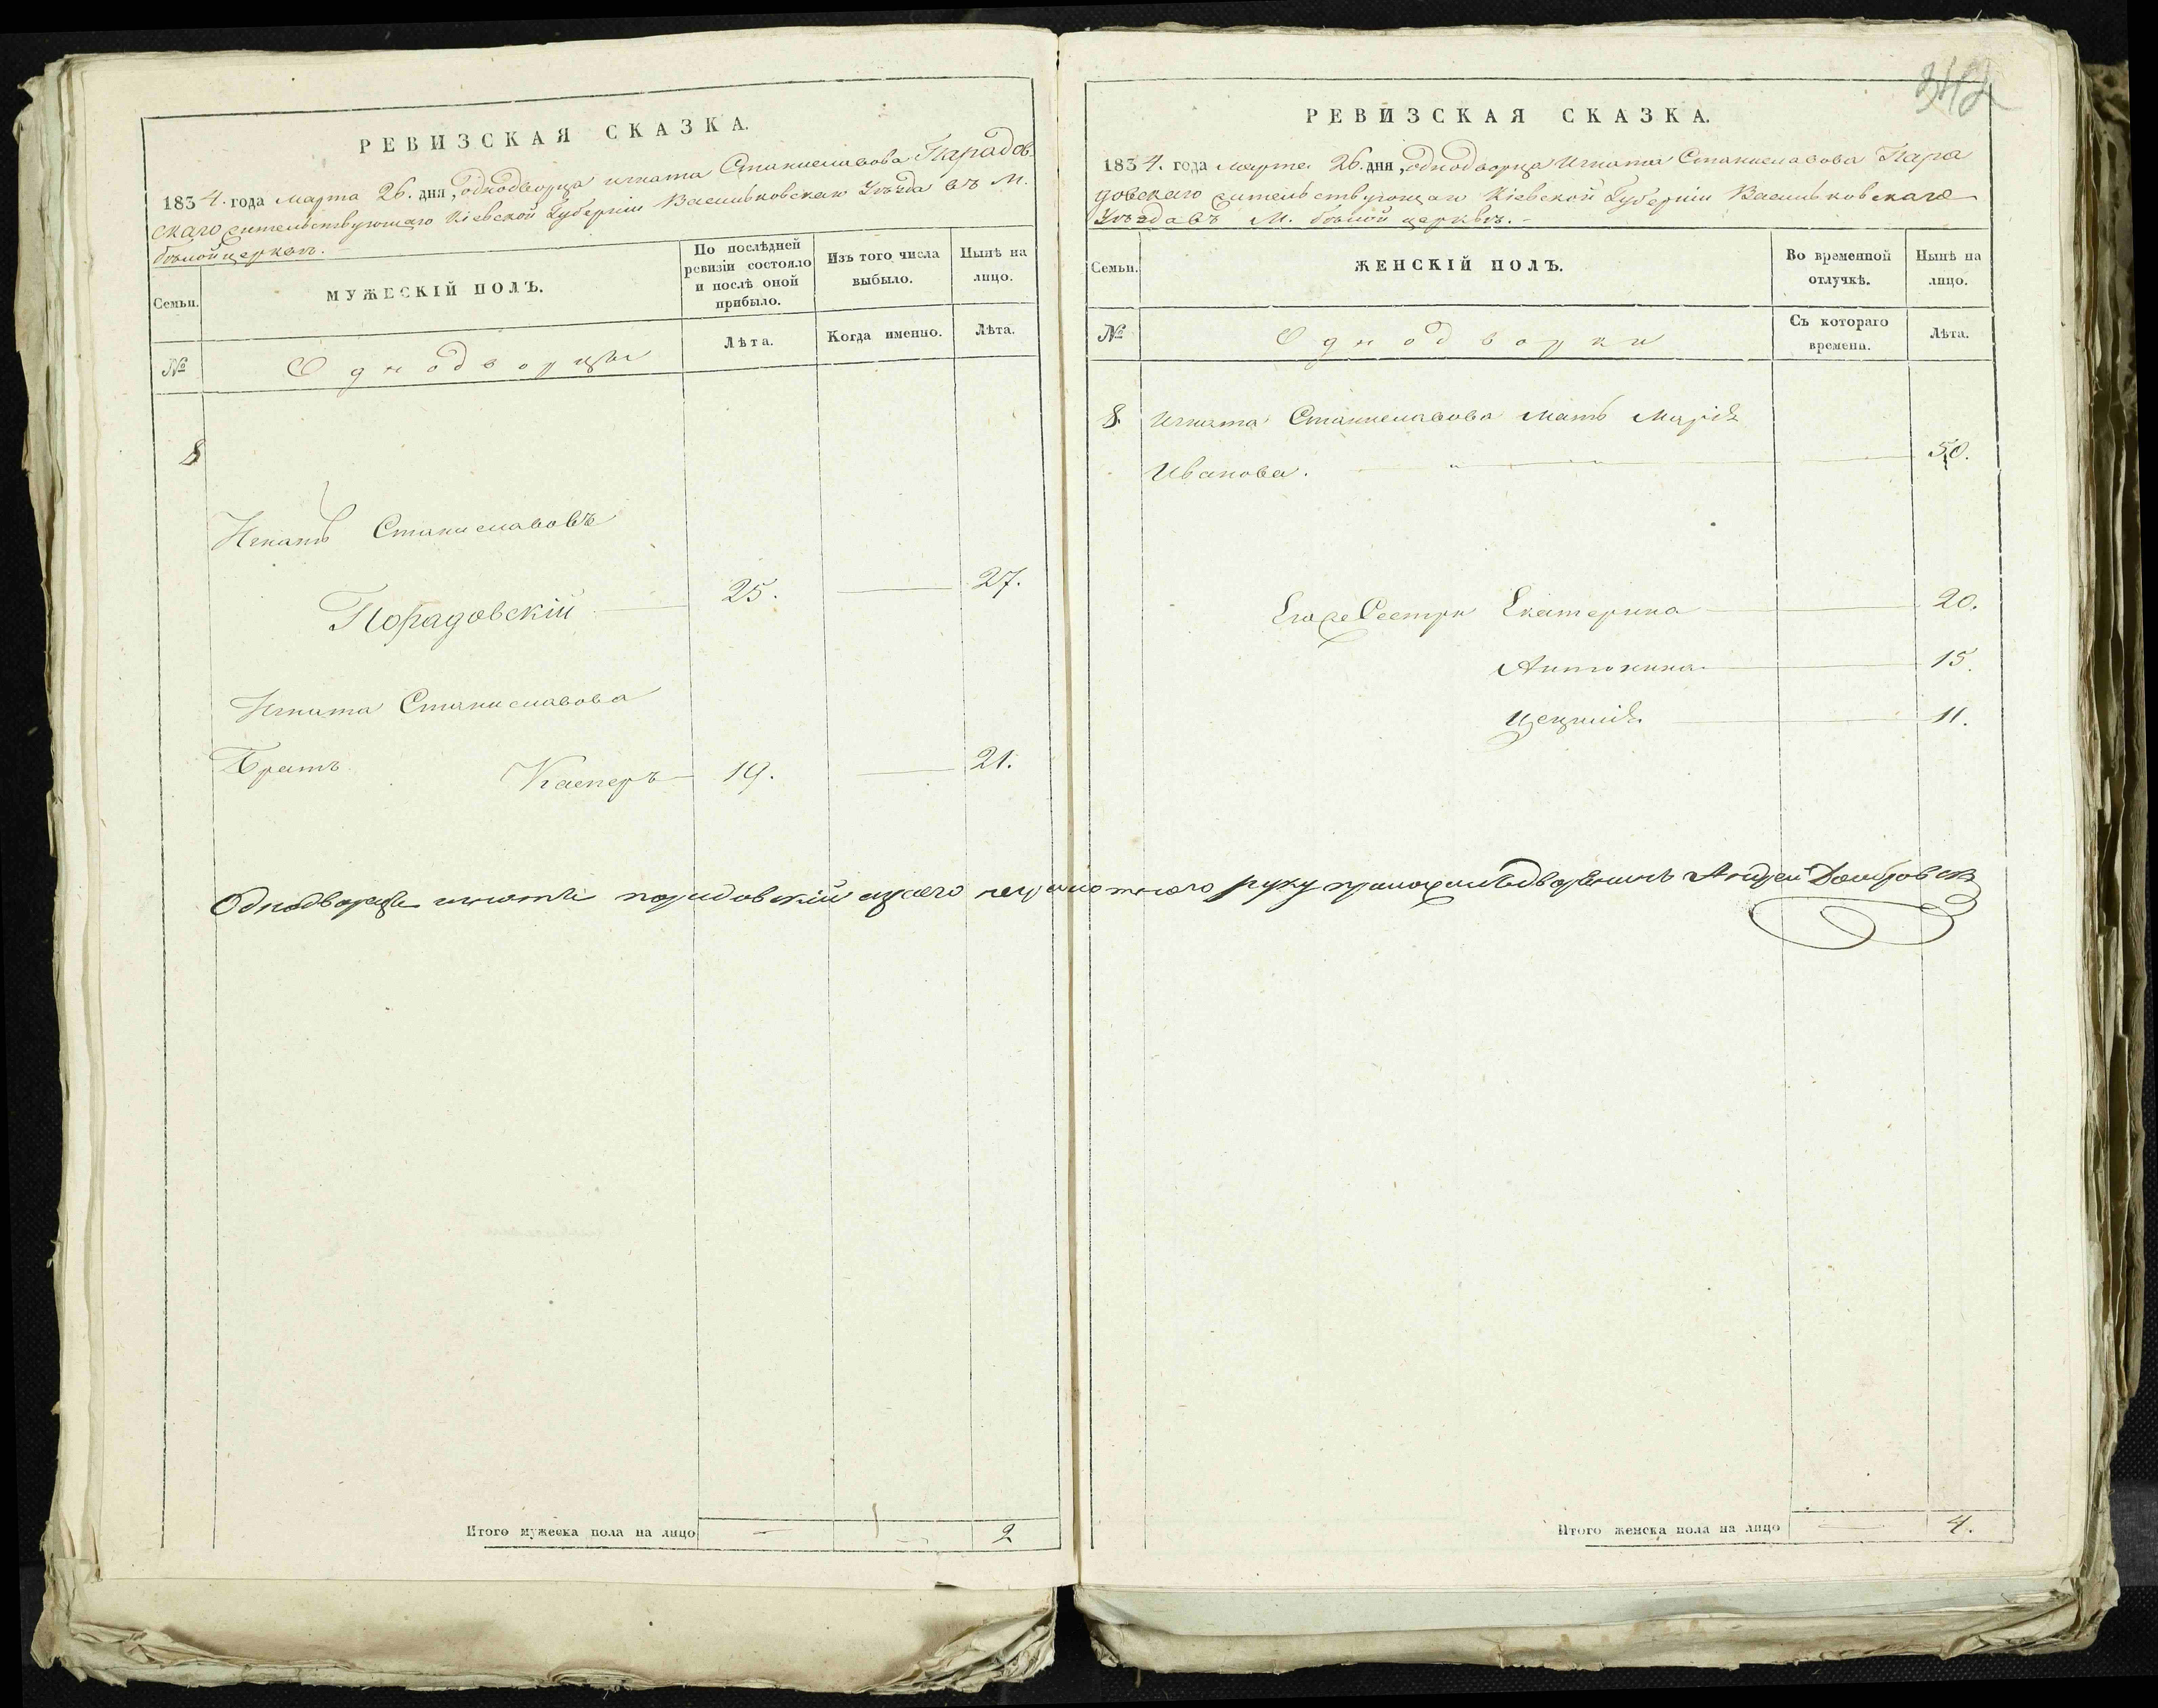 РЕВИЗСКАЯ СКАЗКА.
1834. года марта 26. дня, однодворца игната Станиславова Парадов-
скаго жительствующаго Кіевской Губерніи Васильковскаго Уѣзда въ М.
бѣлойцерквѣ.
Семьи.
МУЖЕСКІЙ ПОЛЪ.
По послѣдней ревизіи состояло и послѣ оной прибыло.
Изъ того числа выбыло.
Нынѣ на лицо.
№
Однодворцы
Лѣта.
Когда именно.
Лѣта.
8
Игнатъ Станиславовъ
Порадовскій 25. 27.
Игната Станиславова
Братъ Касперъ 19. 21.
Итого мужеска пола на лицо 2
342
РЕВИЗСКАЯ СКАЗКА.
1834. года марта 26. дня, однодворца Игната Станиславова Пара
довскаго жительствующаго Кіевской Губерніи Васильковскаго
Уѣзда въ М. бѣлой церквѣ.
Семьи.
ЖЕНСКІЙ ПОЛЪ.
Во временной отлучкѣ.
Нынѣ на лицо.
№
Однодворки
Съ котораго времени.
Лѣта.
8. Игната Станиславова мать Марія
Иванова. 50.
Егоже Сестры Екатерина 20.
Антонина 15.
Цецилія 11.
Однодворца игната порадовский азаего неграмотного руку приложилъ дворянинъ Андрей Домбровск
Итого женска пола на лицо 4.